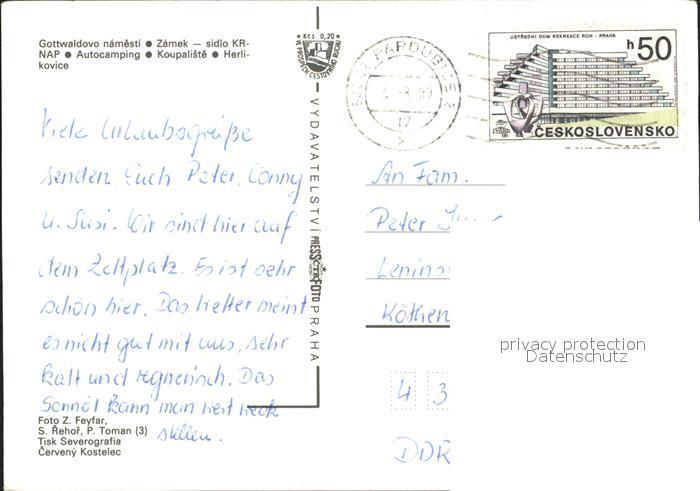 Gottwaldovo náměstí ● Zámek — sidlo KR-
NAP ● Autocamping ● Koupaliště ● Herlí-
kovice
Kčs 0,20
VE PROSPĚCH CESTOVNÍHO RUCHU
PARDUBICE 2
ÚSTŘEDNÍ DŮM REKREACE ROH - PRAHA
h 50
ČESKOSLOVENSKO
VYDAVATELSTVÍ PRESSFOTO PRAHA
Viele Urlaubsgrüße
senden Euch Peter, Conny
u. Susi. Wir sind hier auf
dem Zeltplatz. Es ist sehr
schön hier. Das Wetter meint
es nicht gut mit uns, sehr
kalt und regnerisch. Das
kann man
An Fam.
Peter
Lenins
Köthen
4 3
DDR
privacy protection
Datenschutz
Foto Z. Feyfar,
S. Řehoř, P. Toman (3)
Tisk Severografia
Červený Kostelec